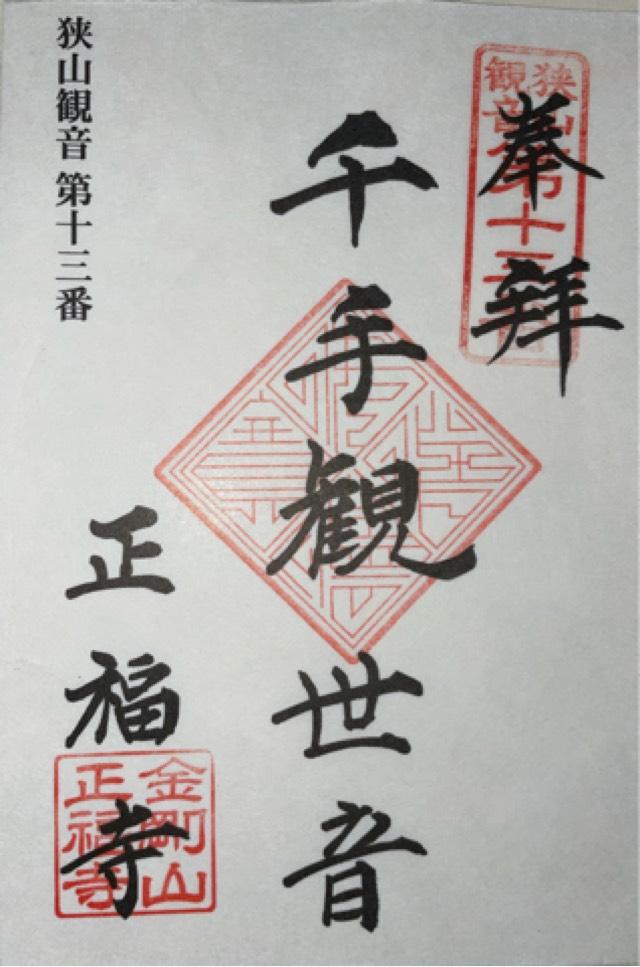 奉拝
狭山
観音第十三番
千手観世音
正福寺
金剛山
正福寺
狭山観音 第十三番